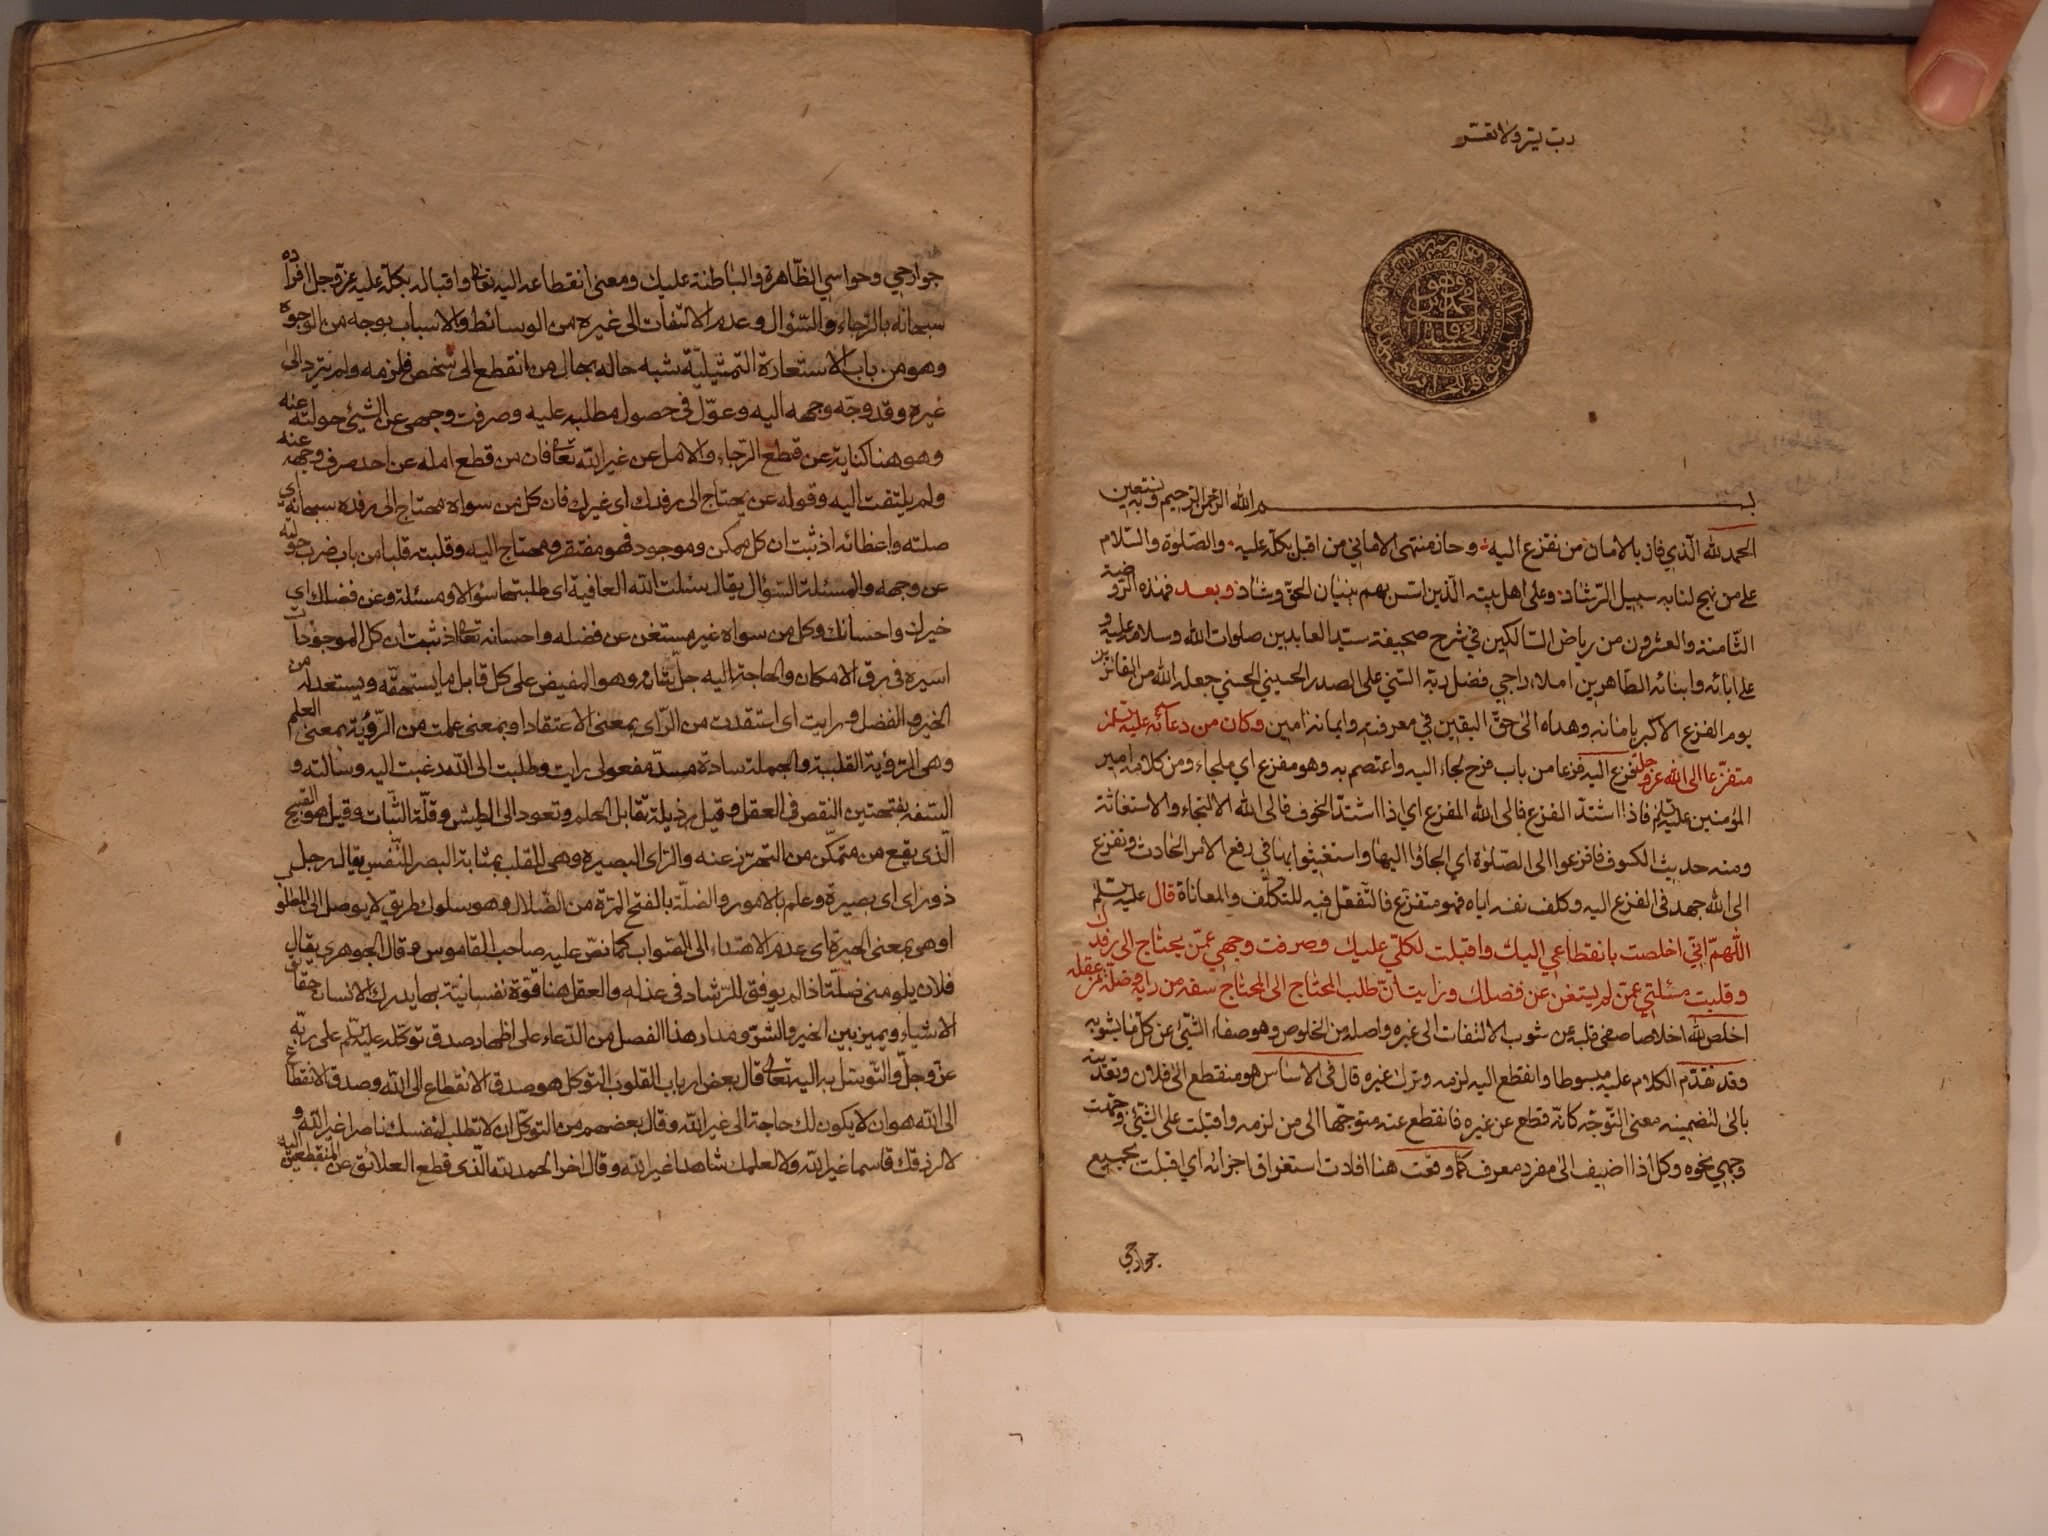 رب يسّر ولا تعسّر
بسم الله الرحمن الرحيم وبه نستعين
الحمد لله الّذي فاز بالامان من تفزع اليه وحاز منتهى الاماني من اقبل بكلّه عليه والصّلوة والسّلام
على من نهج لنا به سبيل الرّشاد وعلى اهل بيته الّذين اسّس بهم بنيان الحقّ وشاد وبعد فهذه الرّوضة
الثّامنة والعشرون من رياض السّالكين في شرح صحيفة سيّد العابدين صلوات الله وسلامه عليه و
على ابائه وابنائه الطّاهرين املاء راجي فضل ربّه السّني علي الصدر الحسيني الحسني جعله الله من الفائزين
يوم الفزع الاكبر بامانه وهداه الى حقّ اليقين في معرفته وايمانه امين وكان من دعآئه عليه السّلم
متفزّعا الى الله عزّ وجلّ فزع اليه فزعا من باب فرح لجاء اليه واعتصم به وهو مفزع اي ملجاء ومن كلام امير
المؤمنين عليه السّلم فاذا اشتدّ الفزع فالى الله المفزع اي اذا اشتدّ الخوف فالى الله الالتجاء والاستغاثة
ومنه حديث الكسوف فافزعوا الى الصّلوة اي الجاؤا اليها واستغيثوا بها في رفع الامر الحادث وتفزع
الى الله جهد في الفزع اليه وكلف نفسه اياه فهو متفزع فالتّفعّل فيه للتكلّف والمعاناة قال عليه السّلم
اللّهمّ انّي اخلصت بانقطاعي اليك واقبلت بكلّي عليك وصرفت وجهي عمّن يحتاج الى رفدك
وقلبت مسئلتي عمّن لم يستغن عن فضلك ورايت انّ طلب المحتاج الى المحتاج سفه من رايه وضلّة من عقله
اخلص لله اخلاصا صفى قلبه عن شوب الالتفات الى غيره واصله من الخلوص وهو صفاء الشّئ عن كلّ ما يشوبه
وقد تقدّم الكلام عليه مبسوطا وانقطع اليه لزمه وترك غيره قال في الاساس هو منقطع الى فلان وتعديته
بالى لتضمينه معنى التّوجّه كانّه قطع عن غيره فانقطع عنه متوجّها الى من لزمه واقبلت على الشّئ وجّهت
وجهي نحوه وكل اذا اضيف الى مفرد معرف كما وقعت هنا افادت استغراق اجزائه اي اقبلت بجميع
جوارحي
جوارحي وحواسي الظّاهرة والباطنة عليك ومعنى انقطاعه اليه تعالى واقباله بكلّه عليه عزّ وجل افراده
سبحانه بالرّجاء والسّؤال وعدم الالتفات الى غيره من الوسائط والاسباب بوجه من الوجوه
وهو من باب الاستعارة التّمثيليّة شبه حاله بحال من انقطع الى شخص فلزمه ولم يترد الى
غيره وقد وجّه وجهه اليه وعوّل في حصول مطلبه عليه وصرفت وجهي عن الشّئ حولته عنه
وهو هنا كناية عن قطع الرّجاء والامل عن غير الله تعالى فان من قطع امله عن احد صرف وجهه عنه
ولم يلتفت اليه وقوله عن يحتاج الى رفدك اي غيرك فان كل من سواه محتاج الى رفده سبحانه اي
صلته واعطائه اذ ثبت ان كل ممكن وموجود فهو مفتقر ومحتاج اليه وقلبته قلبا من باب ضرب حولته
عن وجهه والمسئلة السّؤال يقال سئلت الله العافية اي طلبتها سؤالا ومسئلة وعن فضلك اي
خيرك واحسانك وكل من سواه غير مستغن عن فضله واحسانه تعالى اذ ثبت ان كل الموجودات
اسيرة في رق الامكان والحاجة اليه جلّ شانه وهو المفيض على كل قابل ما يستحقّه ويستعد له من
الخير والفضل ورايت اي استقدت من الرّاى بمعنى الاعتقاد او بمعنى علمت من الرّؤية بمعنى العلم
وهي الرّؤية القلبية والجملة سادة مسدّ مفعولى رايت وطلبت الى الله رغبت اليه وسالته و
السّفه بفتحتين النقص في العقل وقيل رذيلة تقابل الحلم وتعود الى الطيش وقلّة الثّبات وقيل هو القبيح
الّذى يقع من متمكّن من التحرّز عنه والرّاى البصيره وهى للقلب بمثابة البصر للنّفس يقال رجل
ذو راى اى بصيرة وعلم بالامور والضلّة بالفتح المرّة من الضّلال وهو سلوك طريق لا يوصل الى المطلوب
او هى بمعنى الحيرة اى عدم الاهتداء الى الصّواب كما نصّ عليه صاحب القاموس وقال الجوهرى يقال
فلان يلومنى ضلّة اذا لم يوفق للرّشاد فى عذله والعقل هنا قوّة نفسانيّة بها يدرك الانسان حقائق
الاشياء ويميز بين الخير والشّر ومدار هذا الفصل من الدّعاء على اظهار صدق توكّله عليه السّلم على ربّه
عزّ وجلّ والتّوسّل به اليه تعالى قال بعض ارباب القلوب التّوكل هو صدق الانقطاع الى الله وصدق الانقطاع
الى الله هو ان لا يكون لك حاجة الى غير الله وقال بعضهم من التوكّل ان لا تطلب لنفسك ناصرا غير الله و
لا لرزقك قاسما غير الله ولا لعلمك شاهدا غير الله وقال اخر الحمد لله الّذى قطع العلائق عن المنقطعين اليه